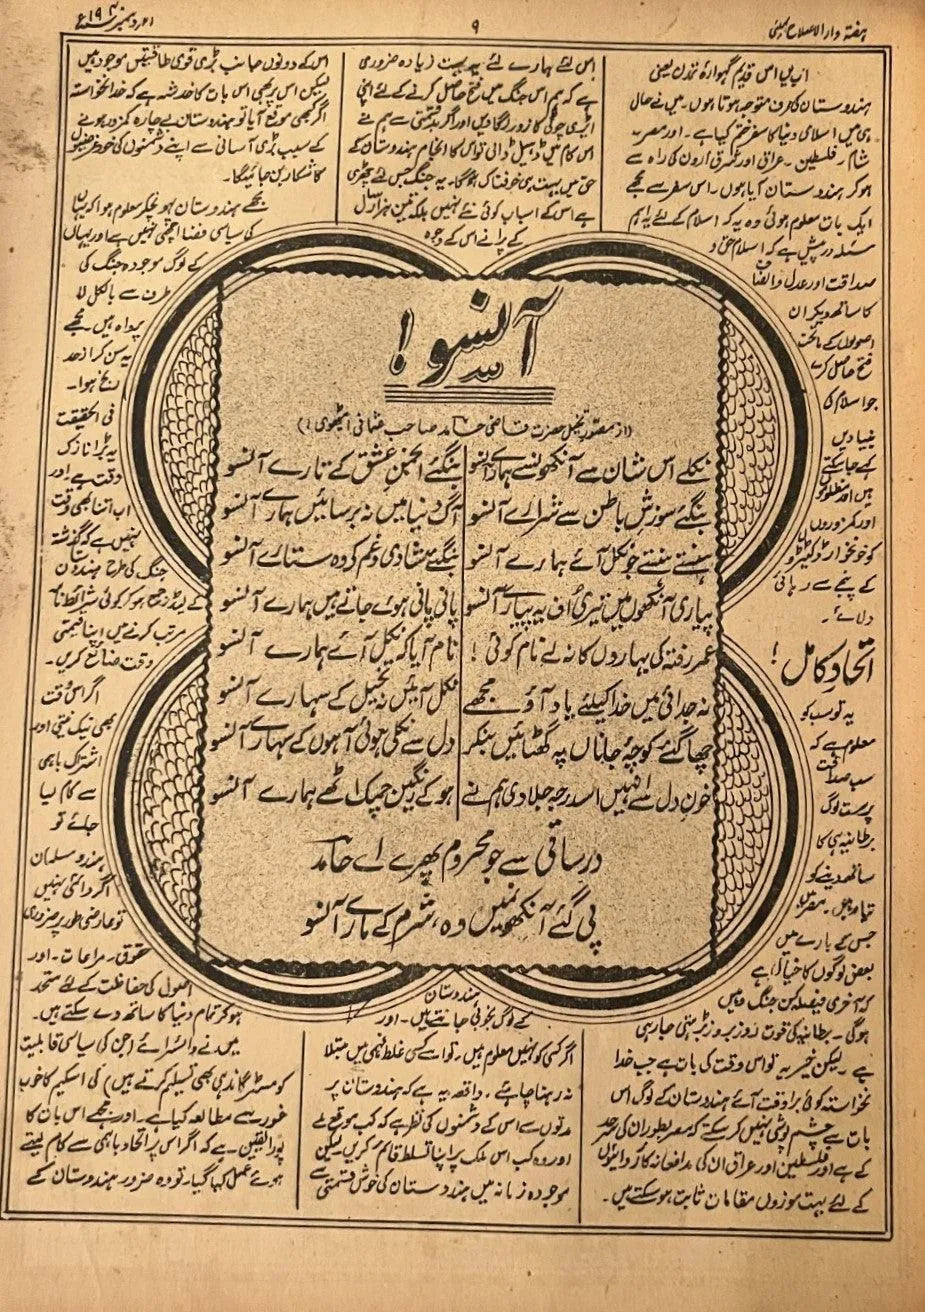 ہفتہ وار الاصلاح بمبئی
۹
۲۱ دسمبر ۱۹۴۰ء
اب پی اس قدیم گہوارۂ تمدن یعنی
ہندوستان کی طرف متوجہ ہوتا ہوں۔ میں نے حال
ہی میں اسلامی دنیا کا سفر ختم کیا ہے۔ اور مصر۔
شام۔ فلسطین۔ عراق اور شرق اردن کی راہ سے
ہو کر ہندوستان آیا ہوں۔ اس سفر سے مجھے
ایک بات معلوم ہوئی وہ یہ کہ اسلام کے لئے یہ اہم
مسئلہ درپیش ہے کہ اسلام حق و
صداقت اور عدل و انصاف
کا ساتھ دیکر ان
اصولوں کے ماتحت
فتح حاصل کرے
جو اسلام کی
بنیادیں
کہے جا سکتے
ہیں اور مظلوموں
اور کمزوروں
کو خونخوار ڈکٹیٹروں
کے پنجے سے رہائی
دلائے۔
اتحاد کامل!
یہ تو سب کو
معلوم ہے کہ
سب صداقت
پرست لوگ
برطانیہ ہی کا
ساتھ دینے کو
جس کے بارے میں
بعض لوگوں کا خیال ہے
کہ آخری فیصلہ کن جنگ وہیں
ہوگی۔ برطانیہ کی قوت روز بروز بڑھتی جا رہی
ہے۔ لیکن خیر یہ تو اس وقت کی بات ہے جب خدا
نخواستہ کوئی برا وقت آئے ہندوستان کے لوگ اس
بات سے چشم پوشی نہیں کر سکتے کہ مصر بطور ان کی سرحد
کے ہے اور فلسطین اور عراق ان کی مدافعانہ کارروائیوں
کے لئے بہت موزوں مقامات ثابت ہو سکتے ہیں۔
اس لئے ہمارے لئے یہ بہت زیادہ ضروری
ہے کہ ہم اس جنگ میں فتح حاصل کرنے کے لئے اپنی
ایڑی چوٹی کا زور لگا دیں اور اگر بدقسمتی سے ہم نے
اس کام میں ڈھیل ڈالی تو اس کا انجام ہندوستان کے
حق میں بہت ہی خوفناک ہوگا۔ یہ جنگ جس لئے چھڑی
ہے اس کے اسباب کوئی نئے نہیں بلکہ تین ہزار سال
کے پرانے اس کے وجوہ
آنسو!
(از مصور تخیل حضرت قاضی حامد صاحب عثمانی انچھوی!)
نکلے اس شان سے آنکھوں سے ہمارے آنسو
بنگئے انجمنِ عشق کے تارے آنسو
بنگئے سوزشِ باطن سے شرارے آنسو
آگ دنیا میں نہ برسائیں ہمارے آنسو
ہنستے ہنستے جو نکل آئے ہمارے آنسو
بنگئے شادی و غم کو وہ ستارے آنسو
پیاری آنکھوں میں تیری اُف یہ پیارے آنسو
پانی پانی ہوئے جاتے ہیں ہمارے آنسو
عمر رفتہ کی بہاروں کا نہ لے نام کوئی!
نام آیا کہ نکل آئے ہمارے آنسو
نہ جدائی میں خدا کیلئے یاد آؤ مجھے
نکل آئیں نہ تخیل کے سہارے آنسو
چھا گئے کوچۂ جاناں پہ گھٹائیں بنکر
دل سے نکلی ہوئی آہوں کے سہارے آنسو
خونِ دل سے انہیں اسدرجہ جلا دی ہم نے
ہو کے رنگین چمک اٹھے ہمارے آنسو
درِ ساقی سے جو محروم پھرے اے حامدؔ
پی گئے آنکھوں میں وہ، شرم کے مارے آنسو
ہندوستان
کے لوگ بخوبی جانتے ہیں۔ اور
اگر کسی کو نہیں معلوم ہیں۔ تو اسے کسی غلط فہمی میں مبتلا
نہ رہنا چاہئے۔ واقعہ یہ ہے کہ ہندوستان پر
مدتوں سے اس کے دشمنوں کی نظر ہے کہ کب موقع ملے
اور وہ کب اس ملک پر اپنا تسلط قائم کریں لیکن
موجودہ زمانہ میں ہندوستان کی خوش قسمتی سے
اس کے دونوں جانب بڑی قوی طاقتیں موجود ہیں
لیکن اس پر بھی اس بات کا خدشہ ہے کہ خدانخواستہ
اگر کبھی موقع آیا تو ہندوستان بے چارہ کمزور ہونے
کے سبب بڑی آسانی سے اپنے دشمنوں کی
کا شکار بن جائیگا۔
مجھے ہندوستان پہونچکر معلوم ہوا کہ یہاں
کی سیاسی فضا اچھی نہیں ہے اور یہاں
کے لوگ موجودہ جنگ کی
طرف سے بالکل لا
پرواہ ہیں مجھے
یہ سن کر از حد
رنج ہوا۔
فی الحقیقت
یہ بڑا نازک
وقت ہے اور
اب اتنا بھی وقت
نہیں ہے کہ گذشتہ
جنگ کی طرح ہندوستان
کے لیڈر جمع ہو کر کوئی شرائط نامہ
مرتب کرنے میں اپنا قیمتی
وقت ضائع کریں۔
اگر اس وقت
بھی نیک نیتی اور
اشتراک باہمی
سے کام لیا
جائے تو
ہندو مسلمان
اگر دائمی نہیں
تو عارضی طور پر ضروری
حقوق۔ مراعات۔ اور
اصول کی حفاظت کے لئے متحد
ہو کر تمام دنیا کا ساتھ دے سکتے ہیں۔
میں نے وائسرائے (جن کی سیاسی قابلیت
کو مسٹر گاندھی بھی تسلیم کرتے ہیں) کی اسکیم کا خوب
غور سے مطالعہ کیا ہے۔ اور مجھے اس بات کا
پورا یقین ہے کہ اگر اس پر اتحاد باہمی سے کام لیتے
ہوئے عمل کیا گیا۔ تو وہ ضرور ہندوستان کے